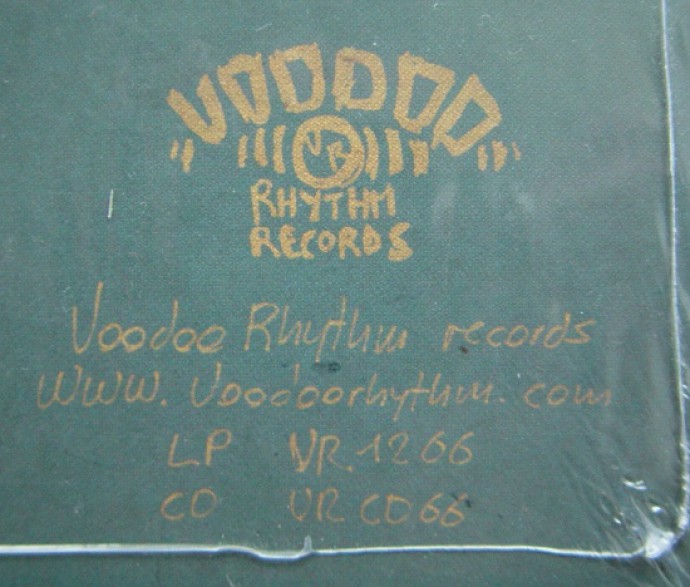 VOODOO
VR
RHYTHM
RECORDS
Voodoo Rhythm records
WWW.Voodoorhythm.com
LP VR.1266
CD VRCD66